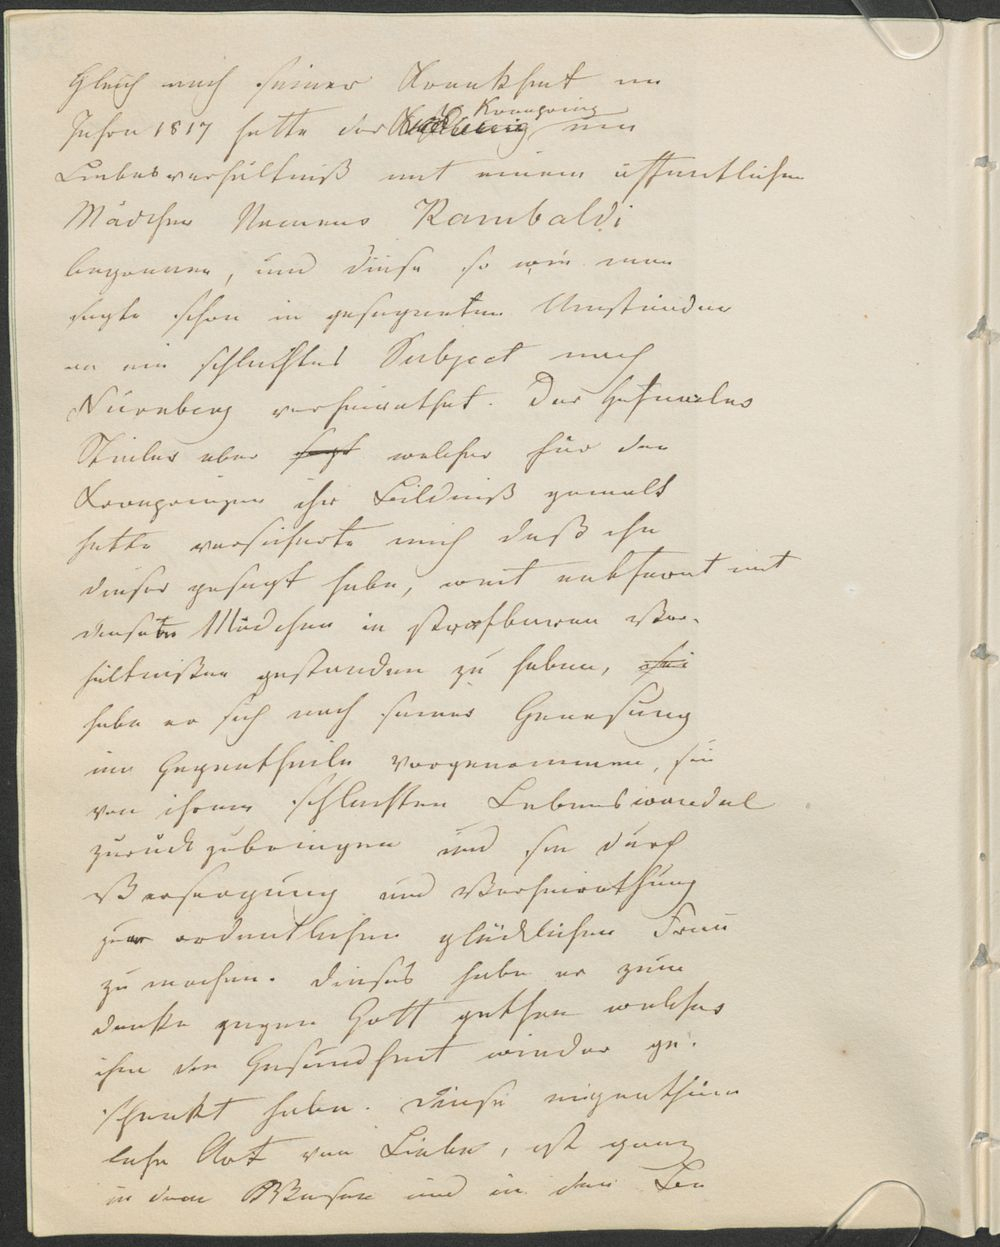 Gleich nach seiner Krankheit im
Jahre 1817 hatte der Kronprinz ein
Liebesverhältniß mit einem öffentlichen
Mädchen Namens Rambaldi
begonnen, und diese so wie man
sagte schon in gesegneten Umständen
an ein schlechtes Subject nach
Nürnberg verheirathet. Der Hofmaler
Stieler aber sagt welcher für den
Kronprinzen ihr Bildniß gemalt
hatte versicherte mich daß ihm
dieser gesagt habe, weit entfernt mit
diesem Mädchen in strafbaren Ver-
hältnißen gestanden zu haben, sei
habe er sich nach seiner Genesung
im Gegentheile vorgenommen, sie
von ihrem schlechten Lebenswandel
zurückzubringen und sie durch
Versorgung und Verheirathung
zur ordentlichen glücklichen Frau
zu machen. Dieses habe er zum
Danke gegen Gott gethan welcher
ihm die Gesundheit wieder ge-
schenkt habe. Diese eigenthüm
liche Art von Liebe, ist ganz
in dem Wesen und in den Le